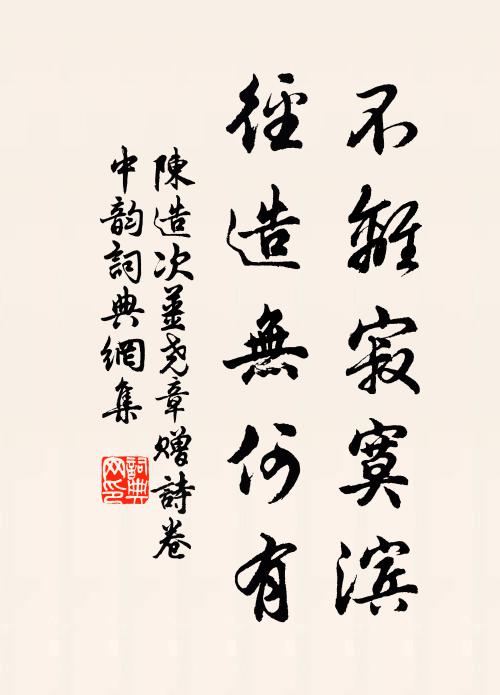 不離寂寞滨
徑造無何有
陳造次姜尧章赠詩卷
中韵詞典網集
詞典
网印